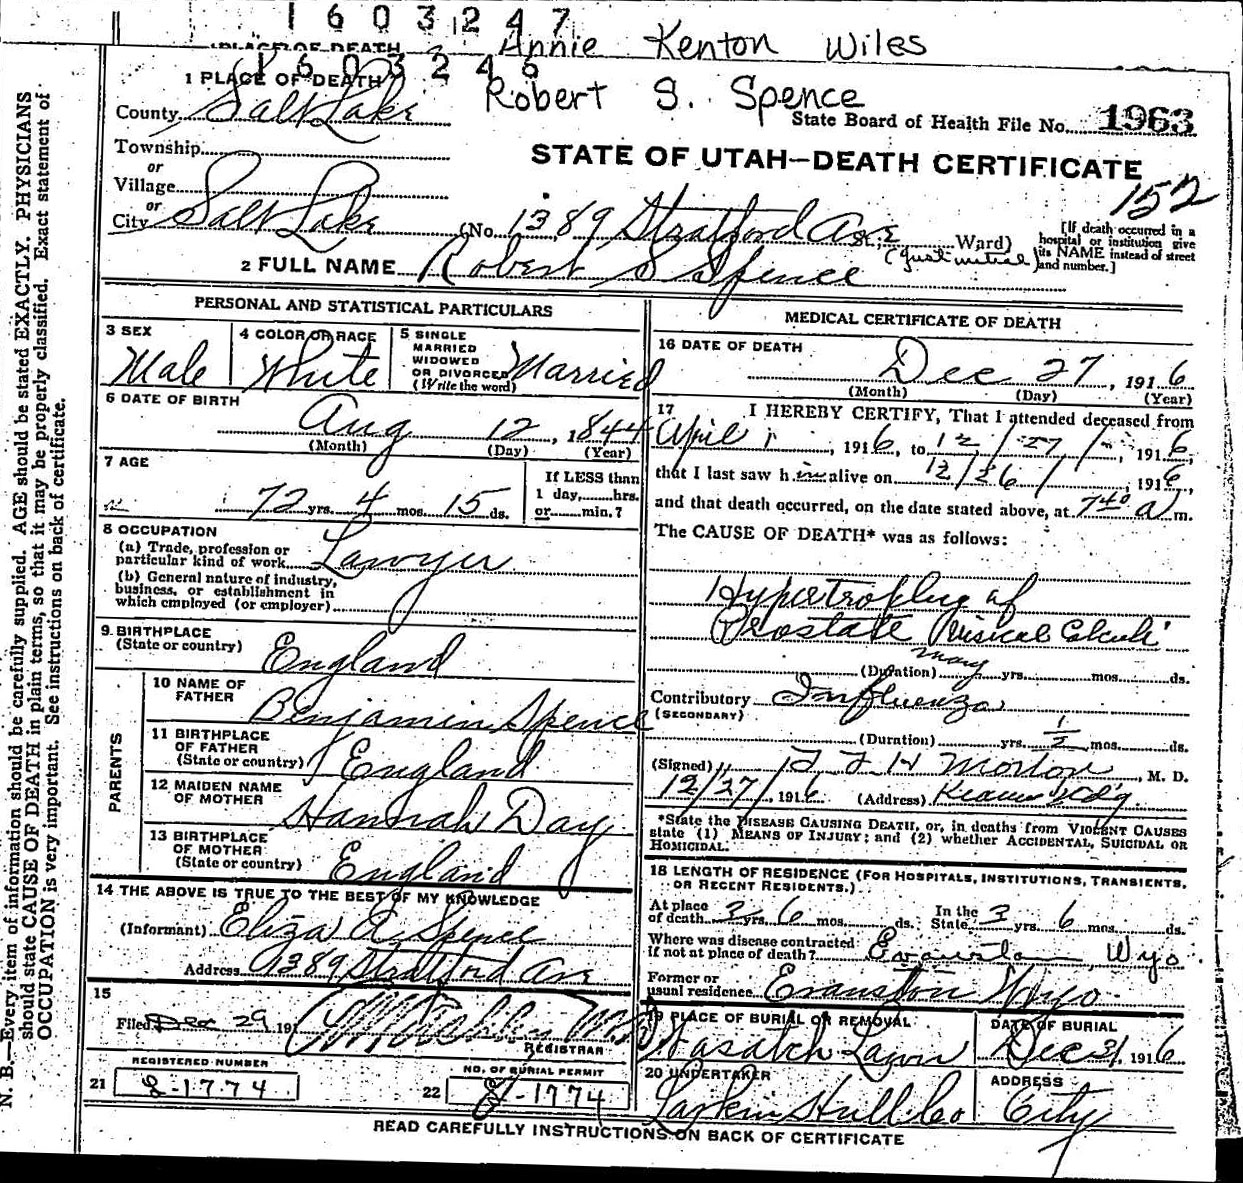 1603247
PLACE OF DEATH Annie Kenton Wiles
1603246
1 PLACE OF DEATH Robert S. Spence
County Salt Lake State Board of Health File No. 1963
Township
or
STATE OF UTAH—DEATH CERTIFICATE
Village
or
152
City Salt Lake (No. 1389 Stratford Ave St.; Ward) [If death occurred in a hospital or institution give its NAME instead of street and number.]
2 FULL NAME Robert S Spence (just initial)
PERSONAL AND STATISTICAL PARTICULARS
3 SEX Male
4 COLOR OR RACE White
5 SINGLE MARRIED WIDOWED OR DIVORCED (Write the word) Married
6 DATE OF BIRTH
Aug 12, 1844
(Month) (Day) (Year)
7 AGE
72 yrs. 4 mos. 15 ds.
If LESS than 1 day, hrs. or min.?
8 OCCUPATION
(a) Trade, profession or particular kind of work Lawyer
(b) General nature of industry, business, or establishment in which employed (or employer)
9 BIRTHPLACE (State or country) England
PARENTS
10 NAME OF FATHER Benjamin Spence
11 BIRTHPLACE OF FATHER (State or country) England
12 MAIDEN NAME OF MOTHER Hannah Day
13 BIRTHPLACE OF MOTHER (State or country) England
14 THE ABOVE IS TRUE TO THE BEST OF MY KNOWLEDGE
(Informant) Eliza A Spence
Address 1389 Stratford Ave
15
Filed Dec 29 191
REGISTRAR
REGISTERED NUMBER
21 2-1774
NO. OF BURIAL PERMIT
22 -1774
MEDICAL CERTIFICATE OF DEATH
16 DATE OF DEATH
Dec 27, 1916
(Month) (Day) (Year)
17 I HEREBY CERTIFY, That I attended deceased from
April 1, 1916, to 12/27/, 1916,
that I last saw him alive on 12/26/, 1916,
and that death occurred, on the date stated above, at 7 40 a m.
The CAUSE OF DEATH* was as follows:
Hypertrophy of
Prostate
(Duration) many yrs. mos. ds.
Contributory Influenza
(SECONDARY)
(Duration) yrs. 1/2 mos. ds.
(Signed) Morton, M. D.
12/27/, 1916 (Address) Kearns Bldg
*State the DISEASE CAUSING DEATH, or, in deaths from VIOLENT CAUSES state (1) MEANS OF INJURY; and (2) whether ACCIDENTAL, SUICIDAL OR HOMICIDAL.
18 LENGTH OF RESIDENCE (FOR HOSPITALS, INSTITUTIONS, TRANSIENTS, OR RECENT RESIDENTS.)
At place of death 3 yrs. 6 mos. ds. In the State 3 yrs. 6 mos. ds.
Where was disease contracted if not at place of death? Evanston Wyo
Former or usual residence Evanston Wyo
19 PLACE OF BURIAL OR REMOVAL Wasatch Lawn
DATE OF BURIAL Dec 31, 1916
20 UNDERTAKER Larkin Hull Co
ADDRESS City
READ CAREFULLY INSTRUCTIONS ON BACK OF CERTIFICATE
N. B.—Every item of information should be carefully supplied. AGE should be stated EXACTLY. PHYSICIANS
should state CAUSE OF DEATH in plain terms, so that it may be properly classified. Exact statement of
OCCUPATION is very important. See instructions on back of certificate.